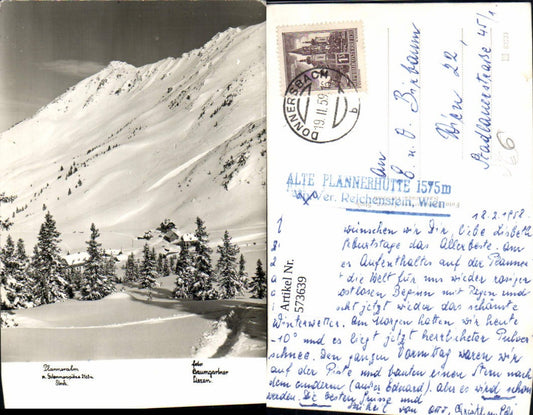 Planneralm
Stmk.
foto
Baumgartner
Liezen
DONNERSBACH
19. II. 58
b
An
E. u. O. Birbaum
Wien 22,
Stadlauerstraße 45/1
ALTE PLANNERHÜTTE 1575m
Reichenstein, Wien
Artikel Nr.
573639
18.2.1958.
wünschen wir Dir, liebe Lisbeth
Geburtstage das Allerbeste. Am
Aufenthaltes auf der Planner
die Welt für uns wieder rosiger
Beginn mit Regen und
jetzt wieder das schönste
Winterwetter. Am Morgen hatten wir heute
-10° und es liegt jetzt herrlichster Pulver
schnee. Den ganzen Vormittag waren wir
auf der Piste und bauten einen Stern nach
dem anderen (außer Eduard). Aber es wird schon
werden. Die besten Grüße und
von